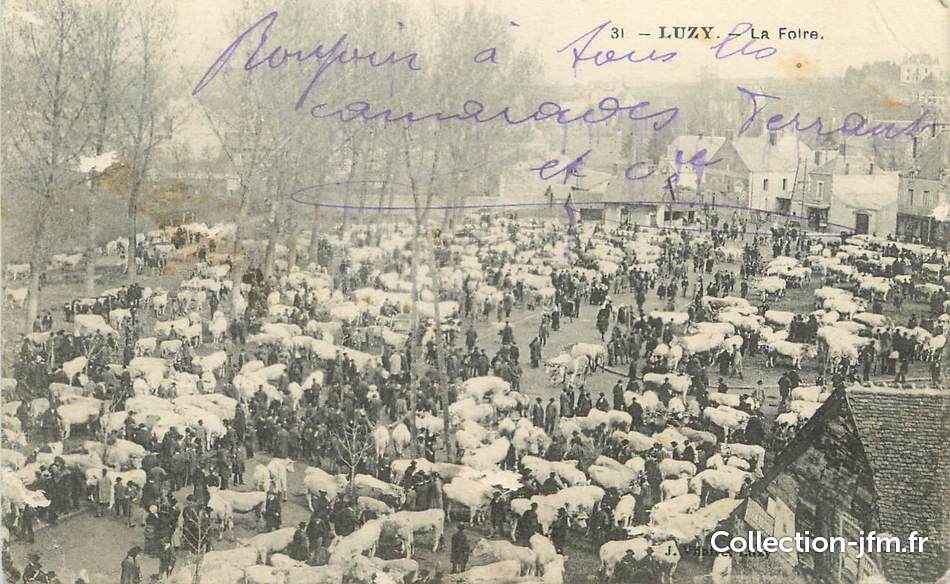 31 - LUZY. - La Foire.
Bonjour à tous les
camarades Terrant
et Cie
Collection-jfm.fr